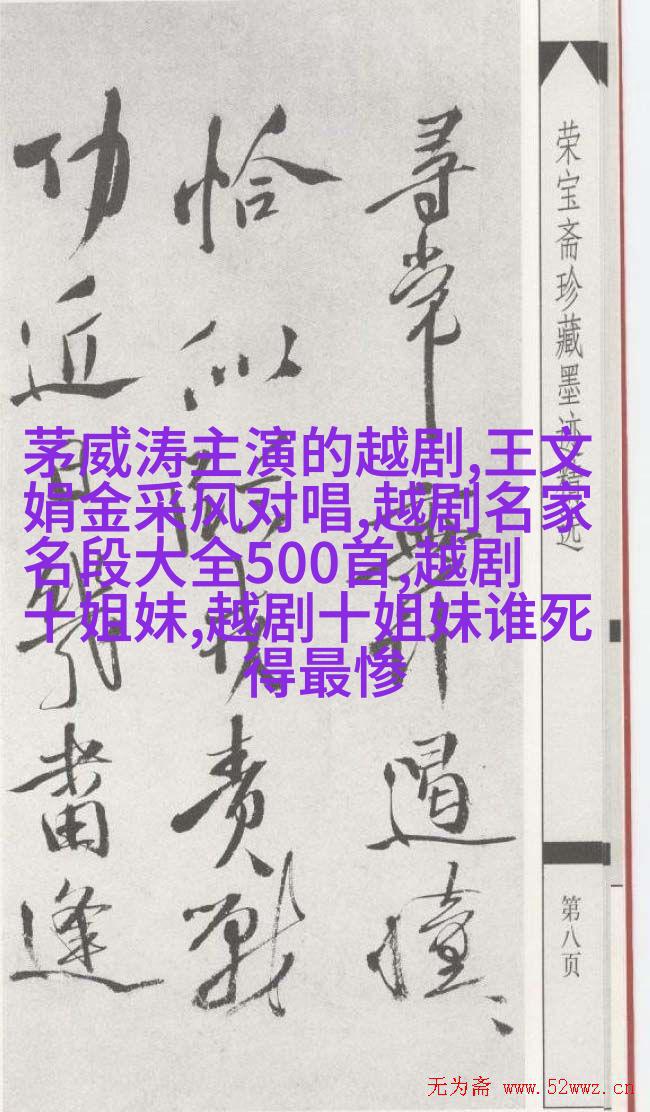 荣宝斋珍藏墨迹精选
第八页
尋常
過
恰似
責戰
功近日
當逢
茅威涛主演的越剧,王文
娟金采风对唱,越剧名家
名段大全500首,越剧
十姐妹,越剧十姐妹谁死
得最惨
无为斋 www.52wwz.cn